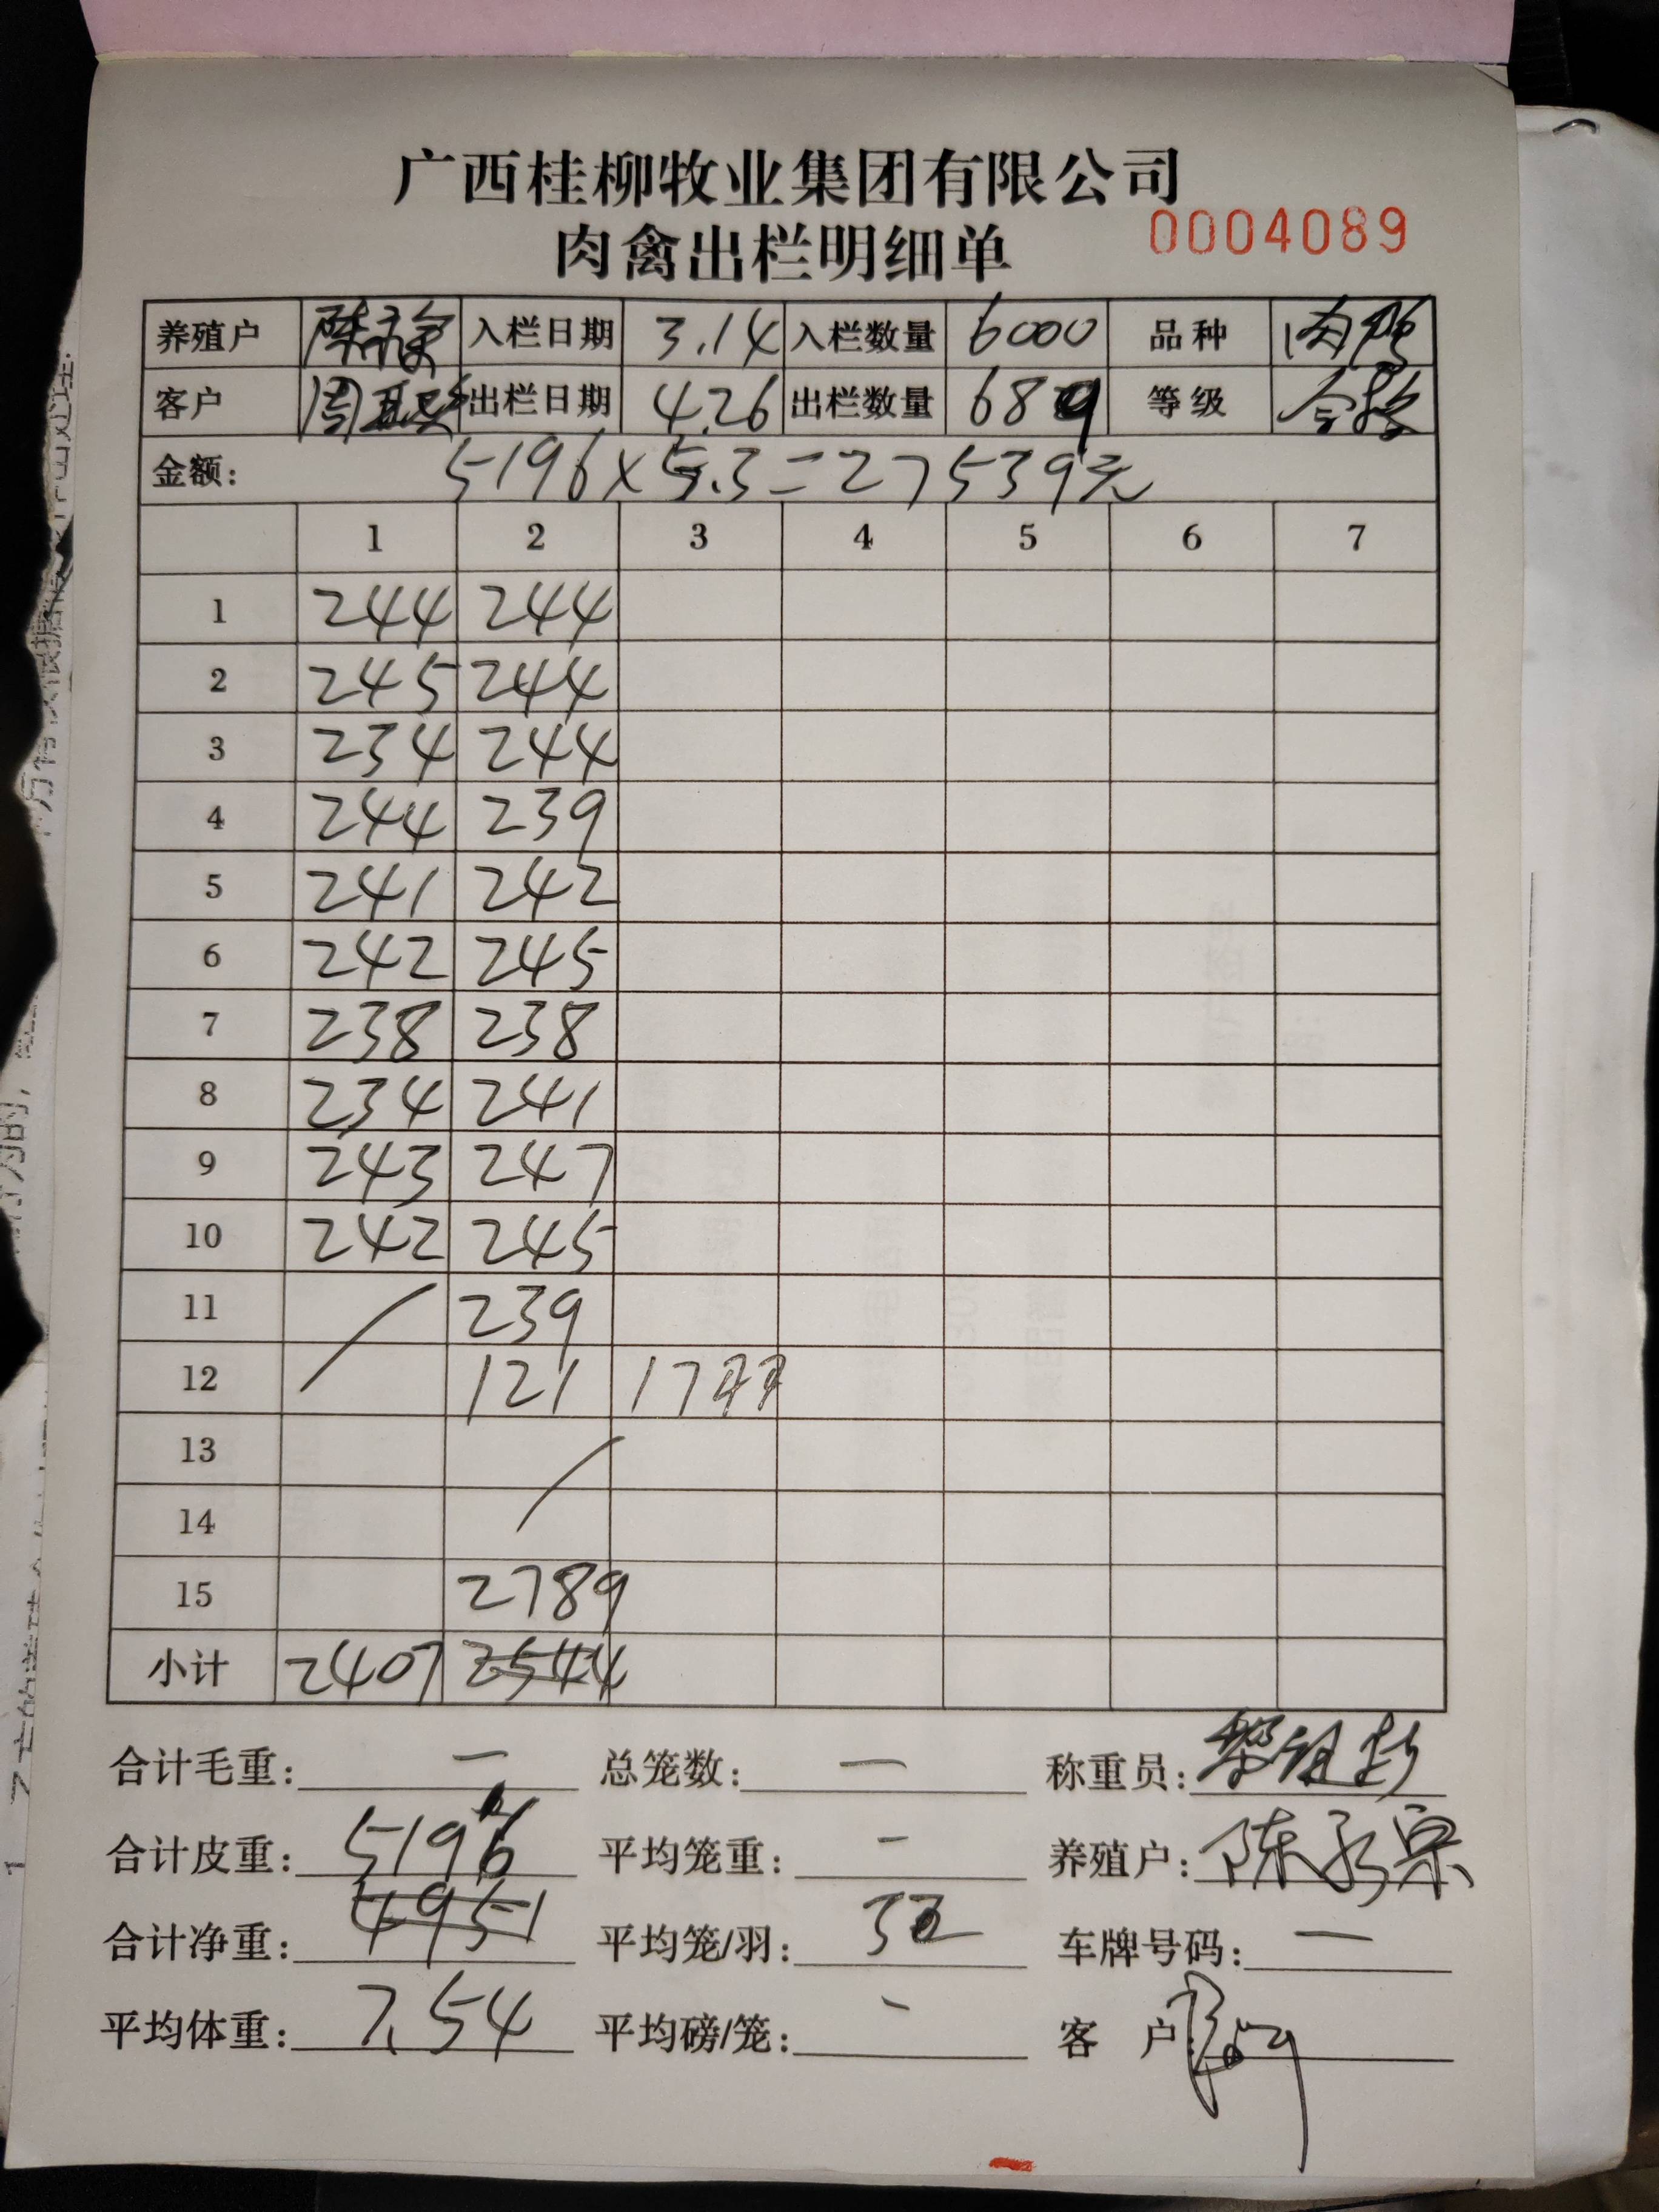 广西桂柳牧业集团有限公司
肉禽出栏明细单 0004089
养殖户 入栏日期 3.14 入栏数量 6000 品种 肉鸭
客户 出栏日期 4.26 出栏数量 689 等级 合格
金额: 5196×5.3=27539元
1 2 3 4 5 6 7
1 244 244
2 245 244
3 234 244
4 244 239
5 241 242
6 242 245
7 238 238
8 234 241
9 243 247
10 242 245
11 239
12 121
13
14
15 2789
小计 2407 2544
合计毛重: 一 总笼数: 一 称重员:
合计皮重: 5196 平均笼重: - 养殖户: 陈永宗
合计净重: 4951 平均笼/羽: 车牌号码: 一
平均体重: 7.54 平均磅/笼: - 客 户: